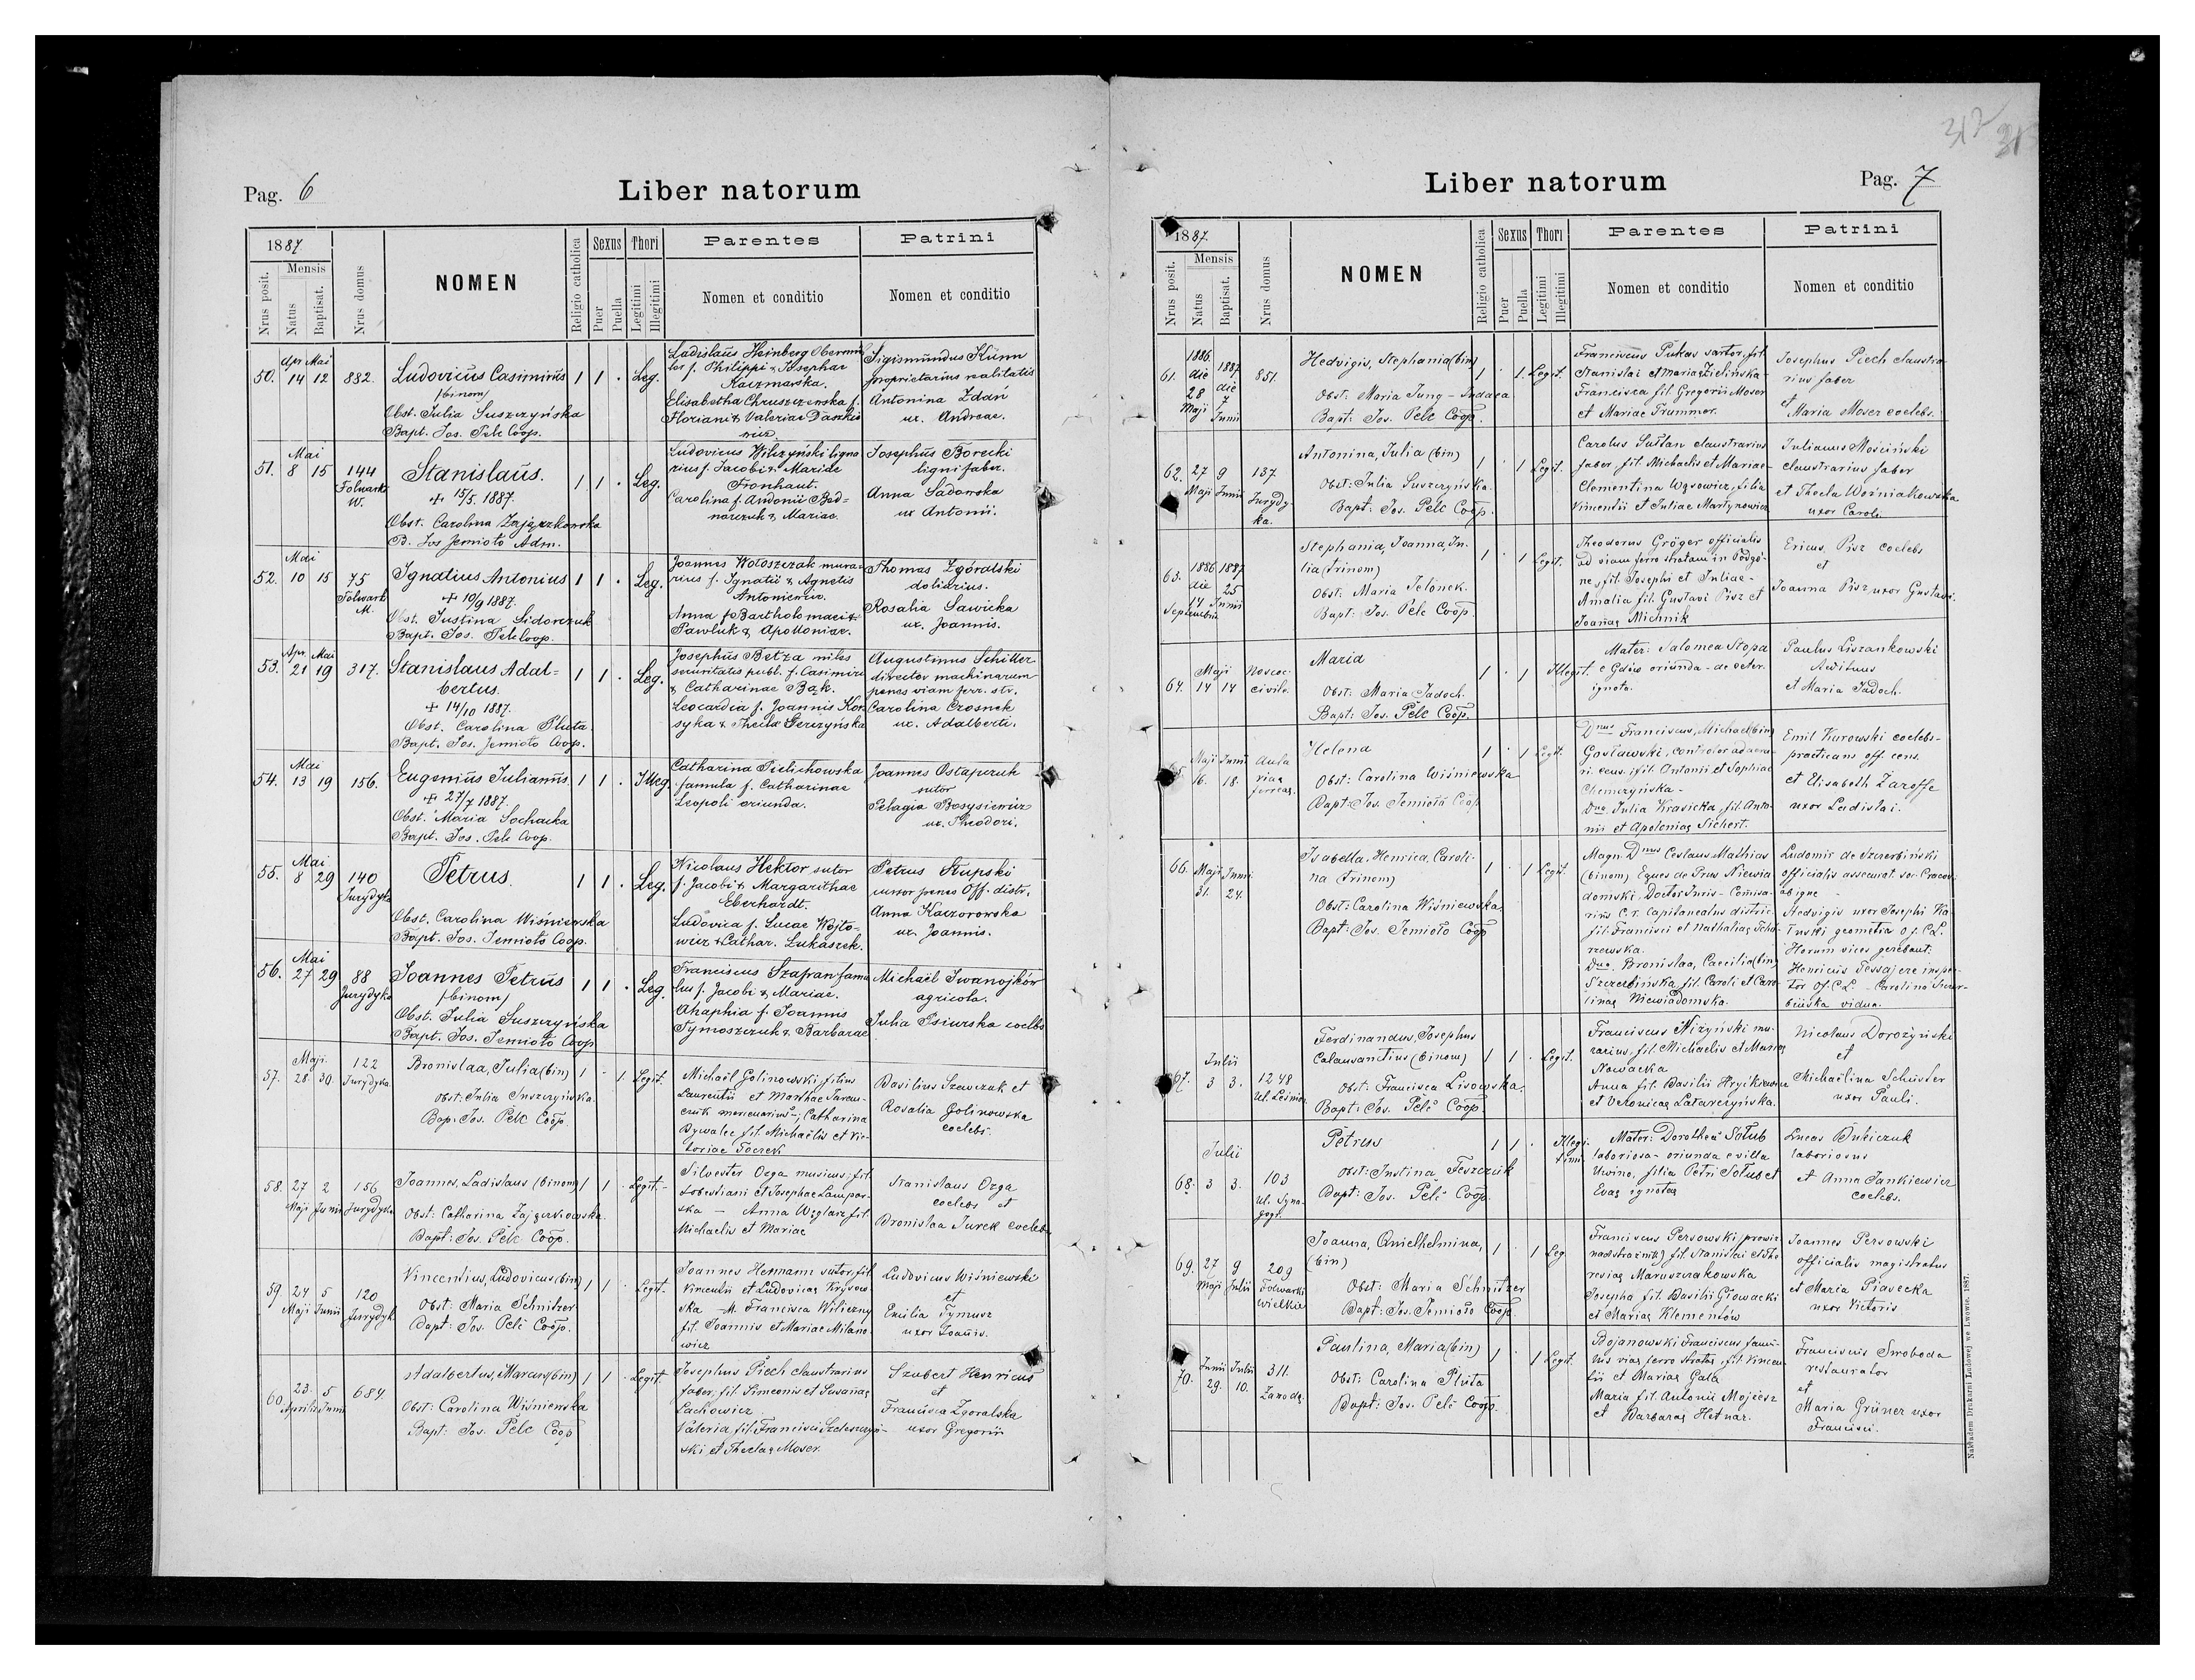 312 313
Pag. 6
Liber natorum
1887
Nrus posit.
Mensis
Natus
Baptisat.
Nrus domus
NOMEN
Religio catholica
Sexus
Puer
Puella
Thori
Legitimi
Illegitimi
Parentes
Nomen et conditio
Patrini
Nomen et conditio
50. Apr 14 Mai 12 882. Ludovicus Casimirus 1 1 . Leg.
(binom)
Obst. Julia Suszczyńska
Bapt. Jos. Pelc Coop.
Ladislaus Heinberg
f. Philippi & Josephae
Kaczmarska.
Elisabetha Chruszczewska f.
Floriani & Valeriae Daszkie
wicz.
Sigismundus Künn
proprietarius realitatis
Antonina Zdań
ux. Andreae.
51. Mai 8 15 144 Folwark W. Stanislaus. 1 1 . Leg.
+ 15/5. 1887.
Obst. Carolina Zajączkowska
B. Jos Jemioło Adm.
Ludovicus Wilczyński ligna
rius f. Jacobi & Mariae
Fronhaut.
Carolina f. Andonii Bed=
narczuk & Mariae.
Josephus Borecki
ligni faber.
Anna Sadowska
ux Antonii.
52. Mai 10 15 75 Folwark M. Ignatius Antonius 1 1 . Leg.
+ 10/9 1887.
Obst. Justina Sidorczuk
Bapt. Jos. Pelc Coop.
Joannes Wołoszczak mura
rius f. Ignatii & Agnetis
Antoniewicz.
Anna f Bartholomaei
Pawluk & Apolloniae.
Thomas Zgóralski
doliarius.
Rosalia Sawicka
ux. Joannis.
53. Apr. 21 Mai 19 317. Stanislaus Adal=
bertus. 1 1 . Leg.
+ 14/10 1887.
Obst. Carolina Pluta.
Bapt. Jos. Jemioło Coop.
Josephus Betza miles
securitatis publ. f. Casimiri
& Catharinae Bąk.
Leocardia f. Joannis Kor
syka & Thecla Gerczyńska
Augustinus Schiller
director machinarum
penes viam ferr. str.
Carolina Czosnek
ux. Adalberti.
54. Mai 13 19 156. Eugenius Julianus. 1 1 . Illeg.
+ 27/7 1887.
Obst. Maria Sochacka
Bapt. Jos. Pelc Coop.
Catharina Pielichowska
famula f. Catharinae
Leopoli oriunda.
Joannes Ostapczuk
sutor
Pelagia Bosysiewicz
ux. Theodori.
55. Mai 8 29 140 Jurydyka Petrus. 1 1 . Leg.
Obst. Carolina Wiśniewska
Bapt. Jos. Jemioło Coop.
Nicolaus Hektor sutor
f. Jacobi & Margarithae
Eberhardt.
Ludovica f. Lucae Wójto=
wicz & Cathar. Łukaszek.
Petrus Stupski
cursor penes Off. distr.
Anna Kaczorowska
ux. Joannis.
56. Mai 27 29 88 Jurydyka Joannes Petrus 1 1 . Leg.
(binom)
Obst. Julia Suszczyńska
Bapt. Jos. Jemioło Coop
Franciscus Szafran famu
lus f. Jacobi & Mariae.
Ahaphia f. Joannis
Tymoszczuk & Barbarae
Michaël Iwanojków
agricola.
Julia Psiurska coelbs
57. Maji 28. 30. 122 Jurydyka. Bronislaa, Julia (bin) 1 - 1. Legit.
Obst: Julia Suszczyńska.
Bap: Jos. Pelc Coop.
Michaël Golinowski filius
Laurentii et Marthae Taras-
czuk mercenarius -; Catharina
Bywalec fil. Michaëlis et Vic-
toriae Toczek
Basilius Szewczuk et
Rosalia Golinowska
coelebs.
58. 27 Maji 2 Junii 156 Jurydyka Joannes, Ladislaus (binom) 1 1 . Legit.-
Obst: Catharina Zajączkowska.
Bapt: Jos. Pelc Coop.
Silvester Ozga musicus; fil.
Sobestiani et Josephae Lampar-
ska - Anna Węglarz fil
Michaelis et Mariae
Stanislaus Ozga
coelebs et
Bronislaa Jurek coelebs
59. 24 Maji 5 Junii 120 Jurydyk Vincentius, Ludovicus (bin) 1 1 . Legit.
Obst: Maria Schnitzer
Bapt: Jos. Pelc Coop.
Joannes Hermann sutor, fil.
Vincentii et Ludovicae Krysow-
ska Francisca Wiliczny
fil. Joannis et Mariae Milano
wicz
Ludovicus Wiśniewski
et
Emilia Tymusz
uxor Joannis.
60. 23. Aprilis 5 Junii 684 Adalbertus, Marcus (bin) 1 1 . Legit.
Obst: Carolina Wiśniewska
Bapt: Jos. Pelc Coop
Josephus Piech claustrarius
faber, fil. Simeonis et Susanae
Lachowicz.
Valeria, fil. Francisci Szeleszczyń-
ski et Theclae Moser.
Szubert Henricus
et
Francisca Zgoralska
uxor Gregorii
Liber natorum
Pag. 7
1887.
Nrus posit.
Mensis
Natus
Baptisat.
Nrus domus
NOMEN
Religio catholica
Sexus
Puer
Puella
Thori
Legitimi
Illegitimi
Parentes
Nomen et conditio
Patrini
Nomen et conditio
61. 1886. die 28 Maji 1887 die 7 Junii 851. Hedvigis, Stephania (bin) 1 . 1. Legit.
Obst: Maria Jung - Indaca
Bapt: Jos. Pelc Coop.
Franciscus Pukas sartor, fil.
Stanislai et Mariae Zielińska -
Francisca fil. Gregorii Moser
et Mariae Trummer.
Josephus Piech claustra-
rius faber
et
Maria Moser coelebs.
62. 27 Maji 9 Junii 137. Jurydy-
ka. Antonina, Julia (bin) 1 . 1 Legit.
Obst: Julia Suszczyńska.
Bapt: Jos. Pelc Coop.
Carolus Sułtan claustrarius
faber fil. Michaelis et Mariae -
Clementina Wąsowicz, filia
Vincentii et Juliae Martynowicz
Julianus Mościński
claustrarius faber
et Thecla Woźniakowska
uxor Caroli.
63. 1886 die 14 Septembris 1887 25 Junii Stephania, Joanna, Ju-
lia (trinom) 1 . 1 Legit.
Obst: Maria Jelonek.
Bapt: Jos. Pelc Coop
Theodorus Gröger officialis
ad viam ferro stratam in Podgó-
rze, fil. Josephi et Juliae -
Amalia fil. Gustavi Pisz et
Joannae Michnik
Ericus Pisz coelebs
et
Joanna Pisz uxor Gustavi.
64. Maji 14 14 Nosoc. civile. Maria 1 . 1 Illegit.
Obst: Maria Jadoch.
Bapt: Jos. Pelc Coop.
Mater: Salomea Stopa
e Gdów oriunda - de ceter.
ignota.
Paulus Liszankowski
Aedituus
et Maria Jadoch.
65. Maji 16. Junii 18. Aula viae ferreae. Helena 1 . 1 Legit.
Obst: Carolina Wiśniewska
Bapt: Jos. Jemioło Coop
Dnus Franciscus, Michael (bin)
Gosławski, controlor ad aera-
ri. cens. fil. Antonii et Sophiae
Chemczyńska -
Dna Julia Krasicka, fil. Anto-
nii et Apoloniae Sichert.
Emil Kurowski coelebs -
practicans off. cens.
et Elisabeth Zaroffe
uxor Ladislai.
66. Maji 31. Junii 24. Isabella, Henrica, Caroli-
na (trinom) 1 . 1 Legit.
Obst: Carolina Wiśniewska.
Bapt: Jos. Jemioło Coop
Magn. Dnus Ceslaus, Mathias
(binom) Eques de Prus Niewia
domski, Doctor Juris - Comisa-
rius C. r. Capitaneatus distric.
fil. Francisci et Nathaliae
rzewska.
Dna. Bronislaa, Caecilia (bin)
Szczerbińska, fil. Caroli et Caro
linae Niewiadomska.
Ludomir de Szczerbiński
officialis assecurat. soc. Cracov.
ab igne -
Hedvigis uxor Josephi Ka
geometra Of. C.L.
Horum vices gerebant:
Henricus Tessajere inspec-
tor Of. C.L. - Carolina Szczer-
bińska vidua.
67. Julii 3 3. 1248 Ul. Leśnia. Ferdinandus, Josephus
Calausantius (binom) 1 1 . Legit.
Obst: Francisca Lisowska.
Bapt: Jos. Pelc Coop.
Franciscus Niżyński mu-
rarius, fil. Michaelis et Mariae
Nowacka
Anna fil. Basilii
et Veronicae Latarczyńska.
Nicolaus Dorożyński
et
Michaëlina Schuster
uxor Pauli.
68. Julii 3 3. 103 Ul. Syna-
gogi. Petrus 1 1 . Illegi-
timi
Obst: Justina Feszczuk
Bapt: Jos. Pelc Coop.
Mater: Dorothea Sołub
laboriosa - oriunda e villa
Uwino, filia Petri Sołub et
Evae ignotae
Lucas Buleiczuk
laboriosus
et Anna Jankiewicz
coelebs.
69. 27 Maji 9 Julii 209 Folwarki wielkie Joanna, Quielhelmina,
(bin) 1 . 1 Leg.
Obst: Maria Schnitzer
Bapt: Jos. Jemioło Coop.
Franciscus Persowski
fil. Stanislai et The
resiae Maruszczakowska
Josepha fil. Basilii Głowacki
et Mariae Klementów
Joannes Persowski
officialis magistratus
et Maria Piavecka
uxor Victoris
70. Junii 29. Julii 10. 311. Zawodą. Paulina, Maria (bin) 1 . 1 Legit.
Obst: Carolina Pluta
Bapt: Jos. Pelc Coop.
Bojanowski Franciscus famu-
lus viae ferro stratae, fil. Vincen
tii et Mariae Gala
Maria fil. Antonii Mojcesz
et Barbarae Hetnar.
Franciscus Swoboda
restaurator
et
Maria Grüner uxor
Francisci.
Nakładem Drukarni Ludowej we Lwowie. 1887.